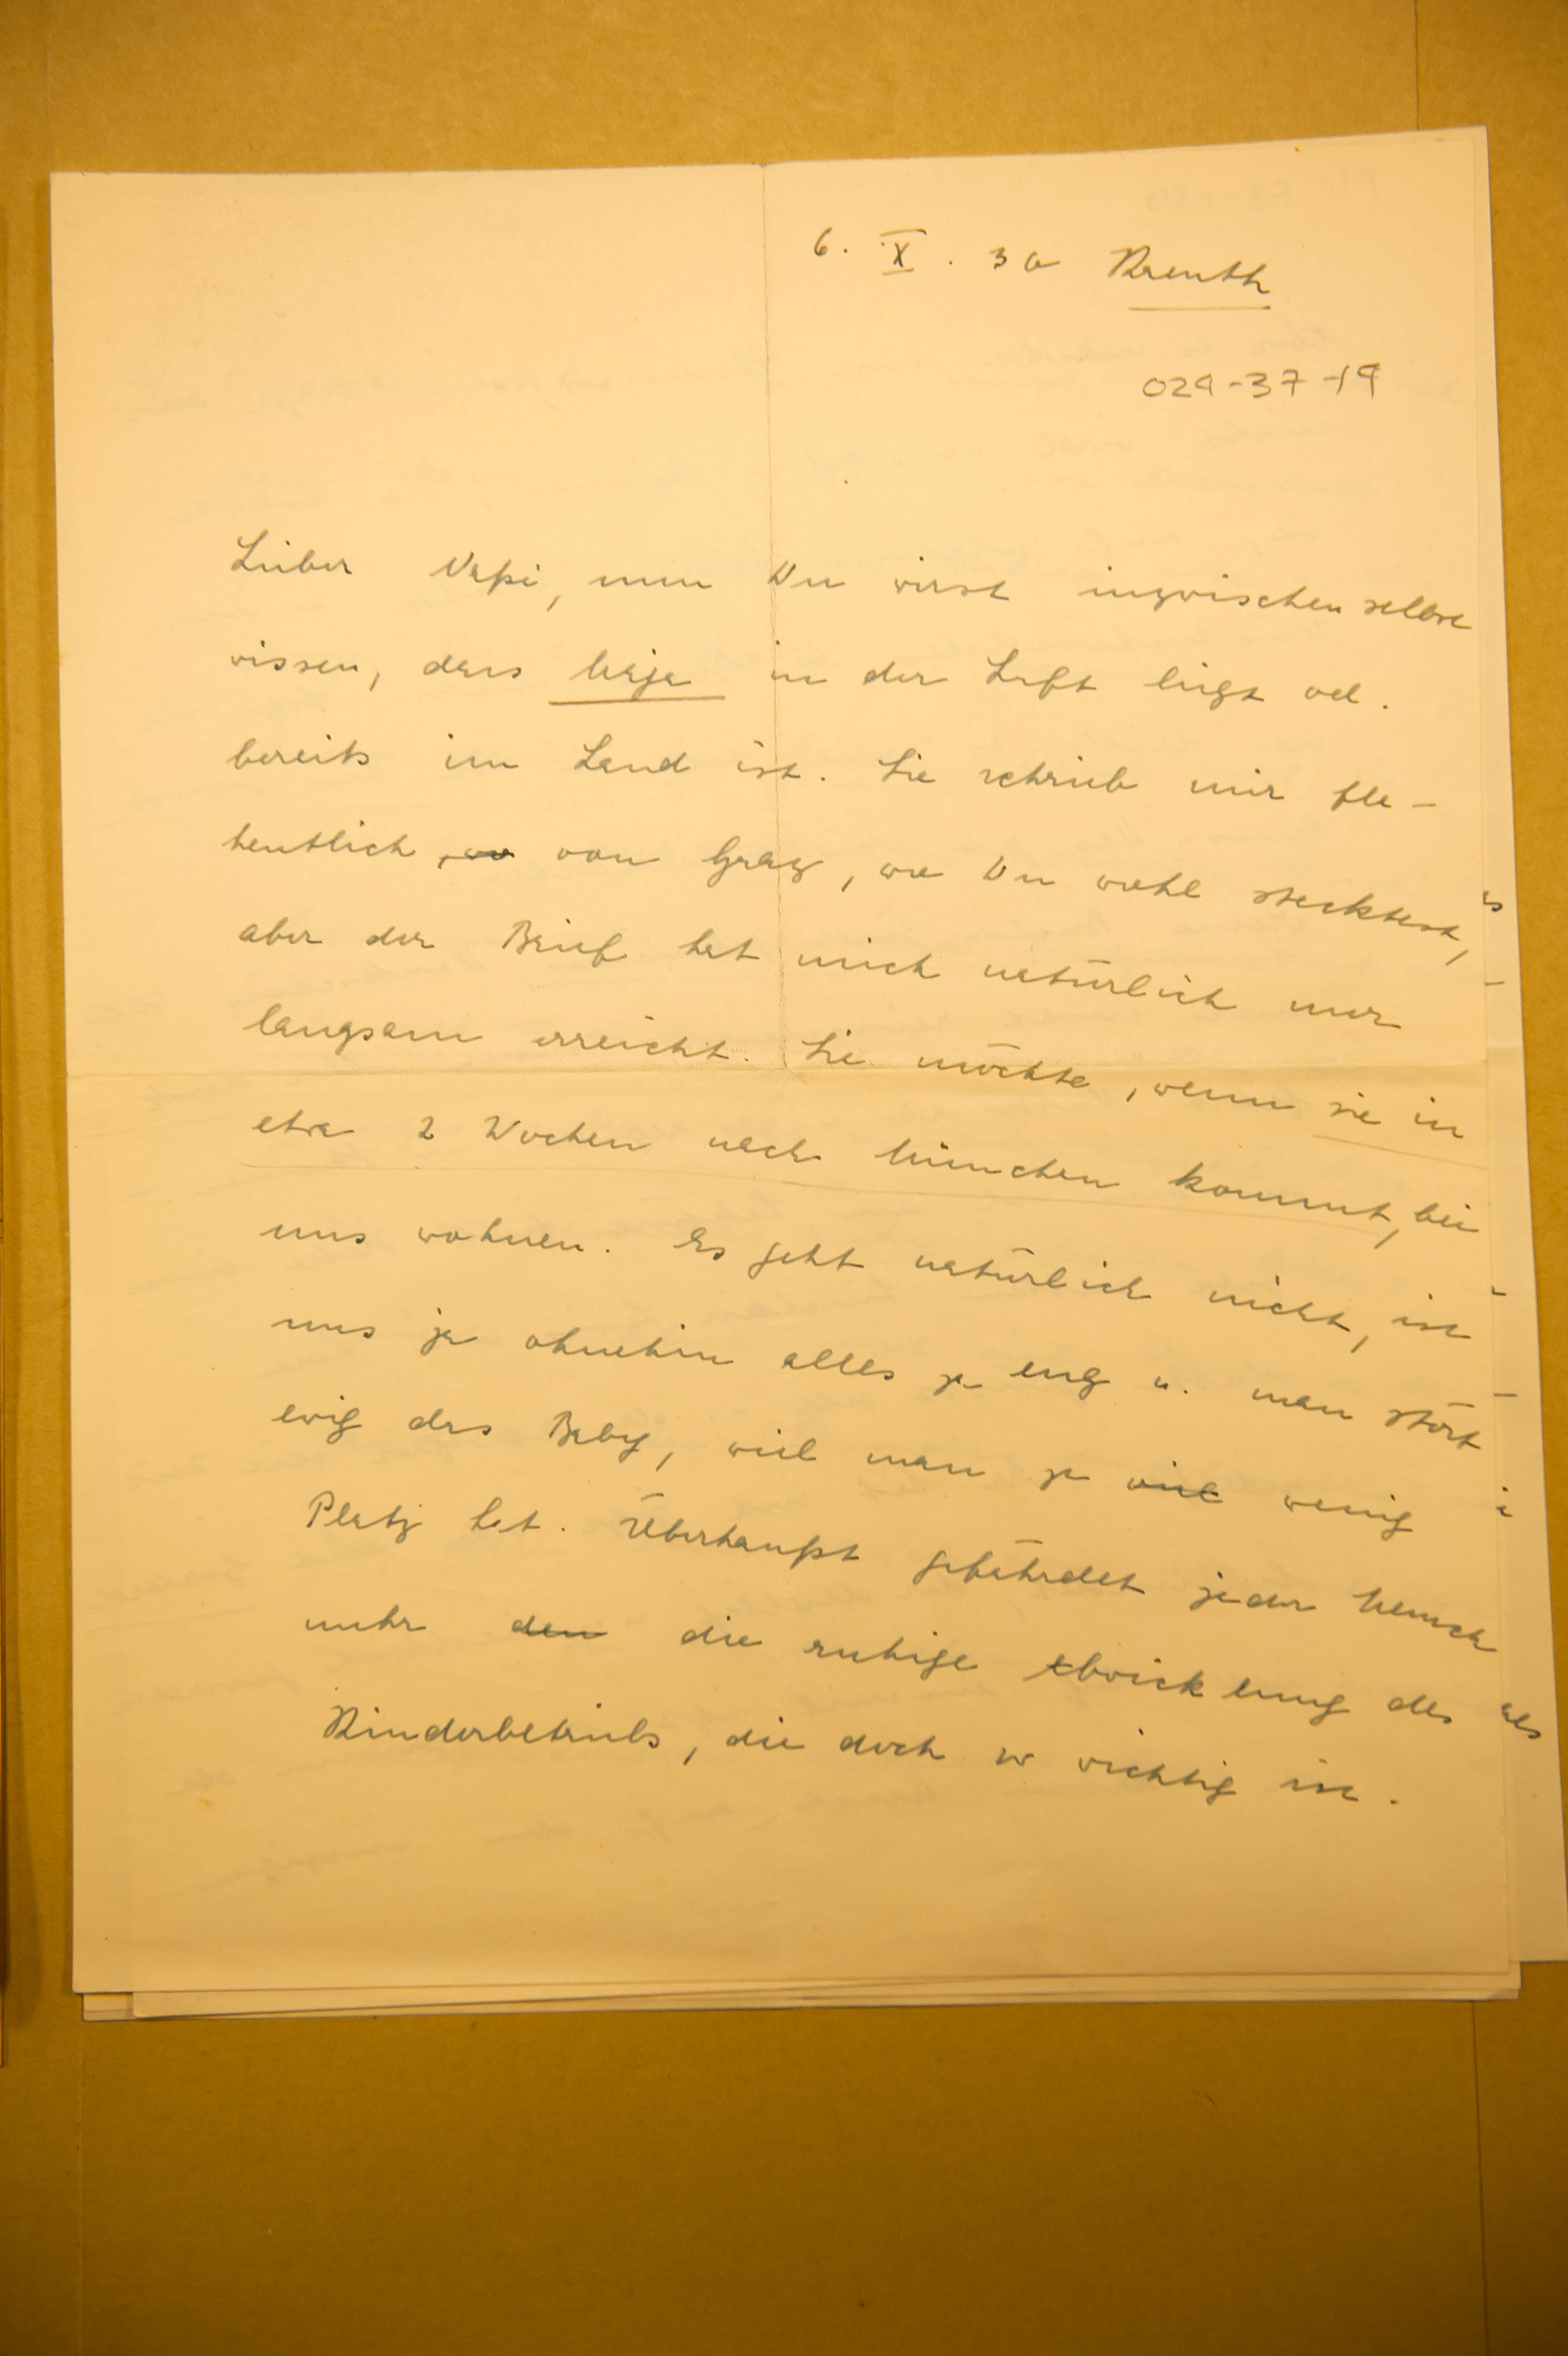 6. X. 30 Kreuth
029-37-19
Lieber Papi, nun Du wirst inzwischen selbst
wissen, dass Maja in der Luft liegt od.
bereits im Land ist. Sie schrieb mir fle-
hentlich, wo von Graz, wo Du wohl stecktest,
aber der Brief hat mich natürlich nur
langsam erreicht. Sie möchte, wenn sie in
etwa 2 Wochen nach München kommt, bei
uns wohnen. Es geht natürlich nicht, ist
uns ja ohnehin alles zu eng u. man stört
ewig das Baby, weil man zu viel wenig
Platz hat. Überhaupt gefährdet jeder Mensch
mehr den die ruhige Abwicklung des
Kinderbetriebs, die doch so wichtig ist.